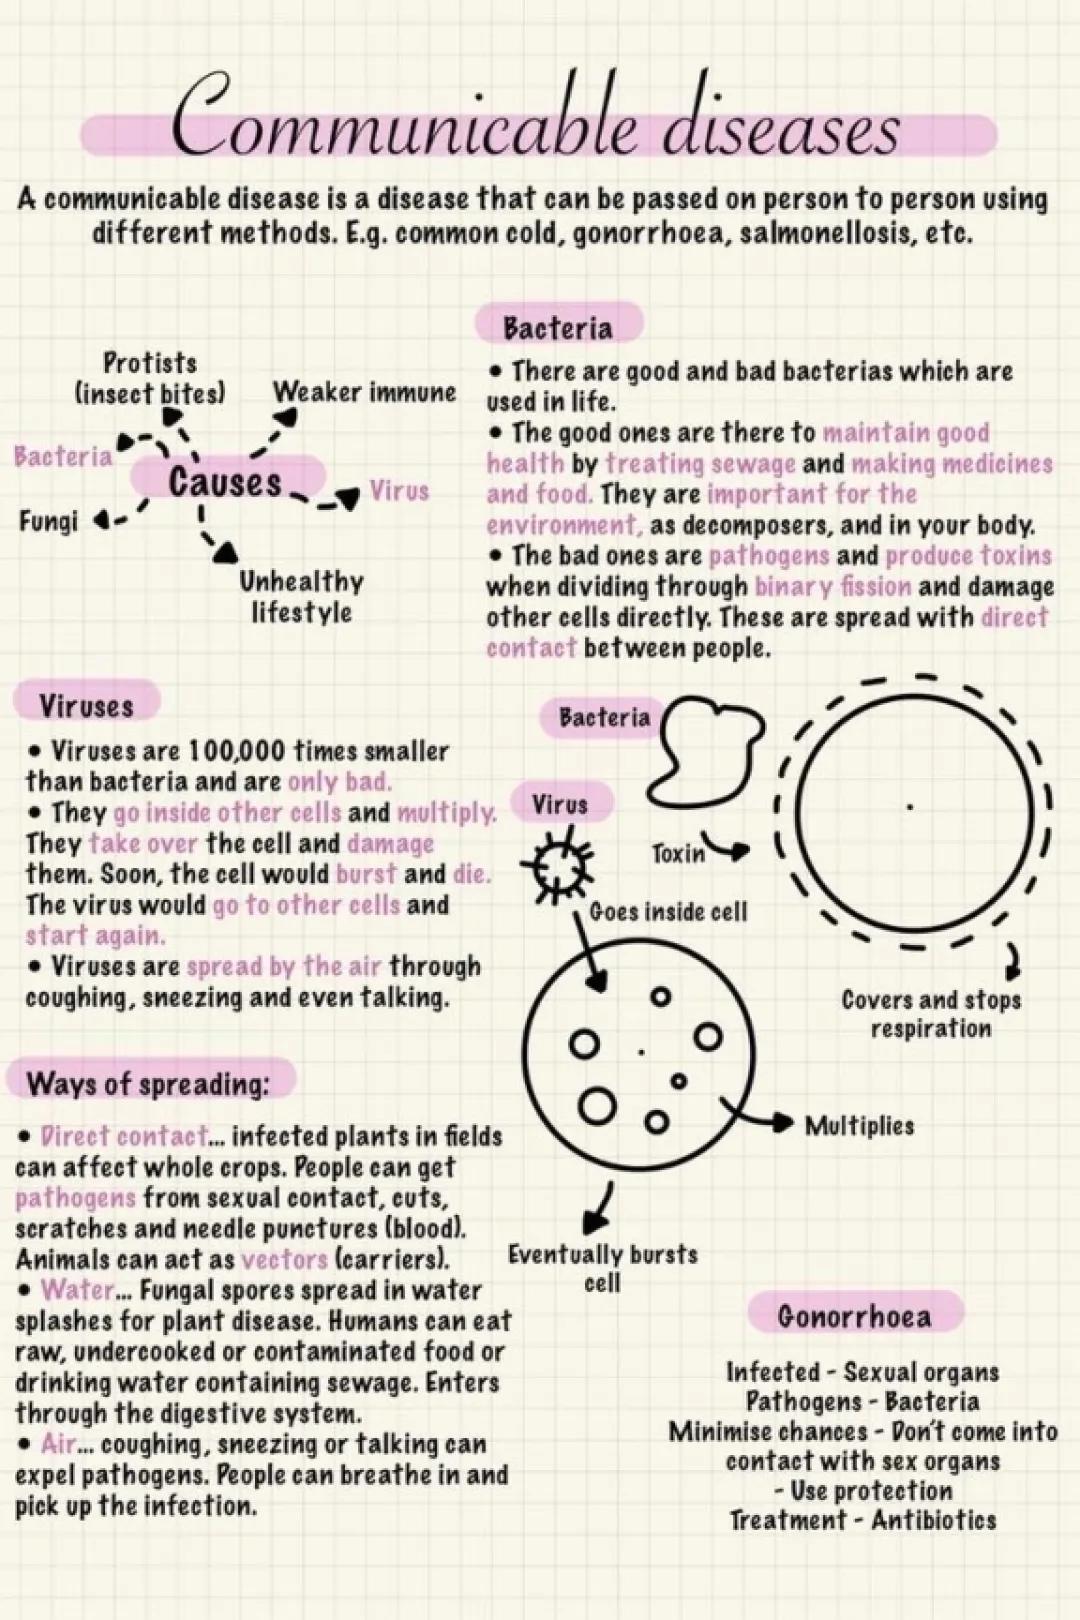 Communicable diseases
A communicable disease is a disease that can be passed on person to person using
different methods. E.g. common cold, gonorrhoea, salmonellosis, etc.
Protists
(insect bites)
Weaker immune
Bacteria
Causes
Virus
Fungi
Unhealthy
lifestyle
Bacteria
• There are good and bad bacterias which are
used in life.
• The good ones are there to maintain good
health by treating sewage and making medicines
and food. They are important for the
environment, as decomposers, and in your body.
• The bad ones are pathogens and produce toxins
when dividing through binary fission and damage
other cells directly. These are spread with direct
contact between people.
Viruses
• Viruses are 100,000 times smaller
than bacteria and are only bad.
• They go inside other cells and multiply.
They take over the cell and damage
them. Soon, the cell would burst and die.
The virus would go to other cells and
start again.
• Viruses are spread by the air through
coughing, sneezing and even talking.
Bacteria
Virus
Toxin
Goes inside cell
Covers and stops
respiration
Multiplies
Eventually bursts
cell
Ways of spreading:
• Direct contact... infected plants in fields
can affect whole crops. People can get
pathogens from sexual contact, cuts,
scratches and needle punctures (blood).
Animals can act as vectors (carriers).
• Water... Fungal spores spread in water
splashes for plant disease. Humans can eat
raw, undercooked or contaminated food or
drinking water containing sewage. Enters
through the digestive system.
• Air... coughing, sneezing or talking can
expel pathogens. People can breathe in and
pick up the infection.
Gonorrhoea
Infected - Sexual organs
Pathogens - Bacteria
Minimise chances - Don't come into
contact with sex organs
- Use protection
Treatment - Antibiotics